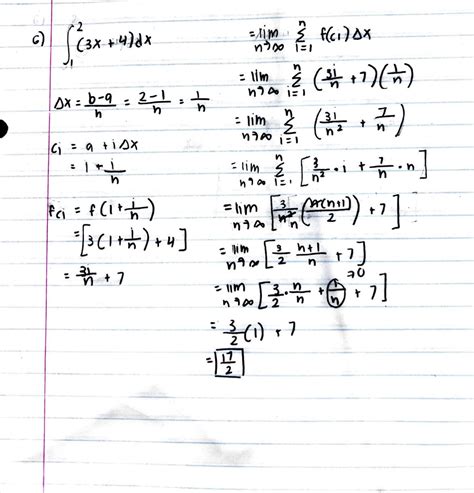 c) ∫₁² (3x + 4) dx
Δx = (b-a)/n = (2-1)/n = 1/n
cᵢ = a + iΔx
= 1 + i/n
f cᵢ = f(1 + i/n)
= [3(1 + i/n) + 4]
= 3i/n + 7
= lim n→∞ Σ i=1 n f(cᵢ) Δx
= lim n→∞ Σ i=1 n (3i/n + 7)(1/n)
= lim n→∞ Σ i=1 n (3i/n² + 7/n)
= lim n→∞ Σ i=1 n [3/n² · i + 7/n · n]
= lim n→∞ [3/n² (n(n+1)/2) + 7]
= lim n→∞ [3/2 · (n+1)/n + 7]
= lim n→∞ [3/2 · n/n + 1/n →0 + 7]
= 3/2 (1) + 7
= 17/2